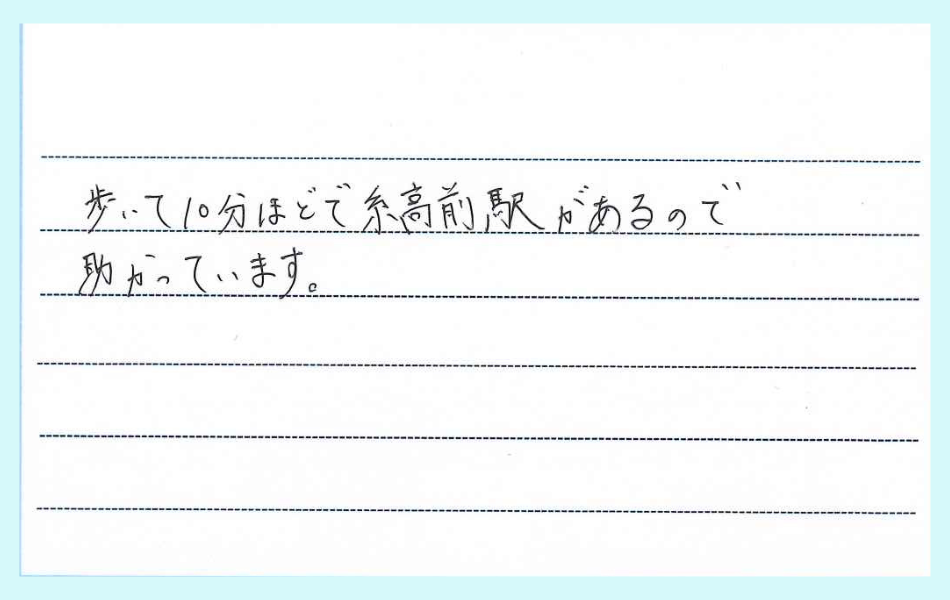 歩いて10分ほどで糸高前駅があるので
助かっています。